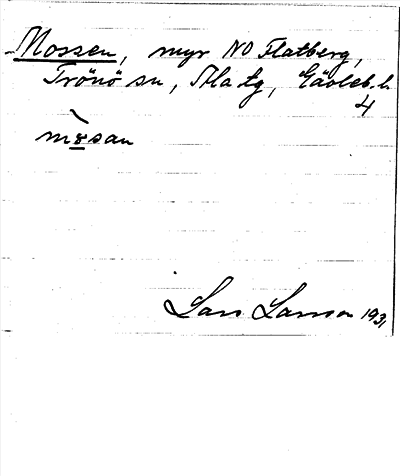 Mossen, myr NO Flatberg,
Trönö sn, Ala tg, Gävleb. l.
4
mosan
Lars Larsson 1931